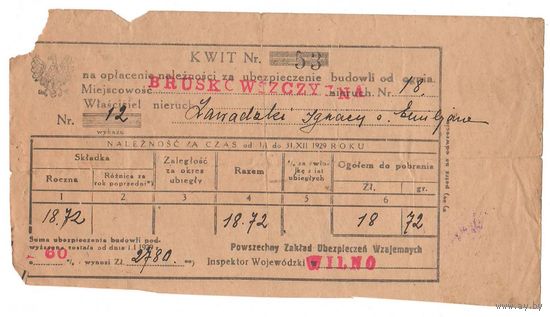 KWIT Nr. 53
na opłacenie należności za ubezpieczenie budowli od ognia.
Miejscowość BRUSKOWSZCZYZNA nieruch. Nr. 18.
Właściciel nieruch. Zawadzki Ignacy s. Emiljana
Nr. 12
wykazu
NALEŻNOŚĆ ZA CZAS od 1.I do 31.XII 1929 ROKU
Składka
Zaległość za okres ubiegły
Razem
% za zwłokę z lat ubiegłych
Ogółem do pobrania
Roczna
Różnica za rok poprzedni*)
Zł. gr.
1 2 3 4 5 6
18.72 18.72 18 72
Suma ubezpieczenia budowli podwyższona została od dnia 1.I 1929
o 60 %, wynosi Zł. 2780.
Powszechny Zakład Ubezpieczeń Wzajemnych
Inspektor Wojewódzki w WILNO
*) patrz na odwrocie
www.ay.by